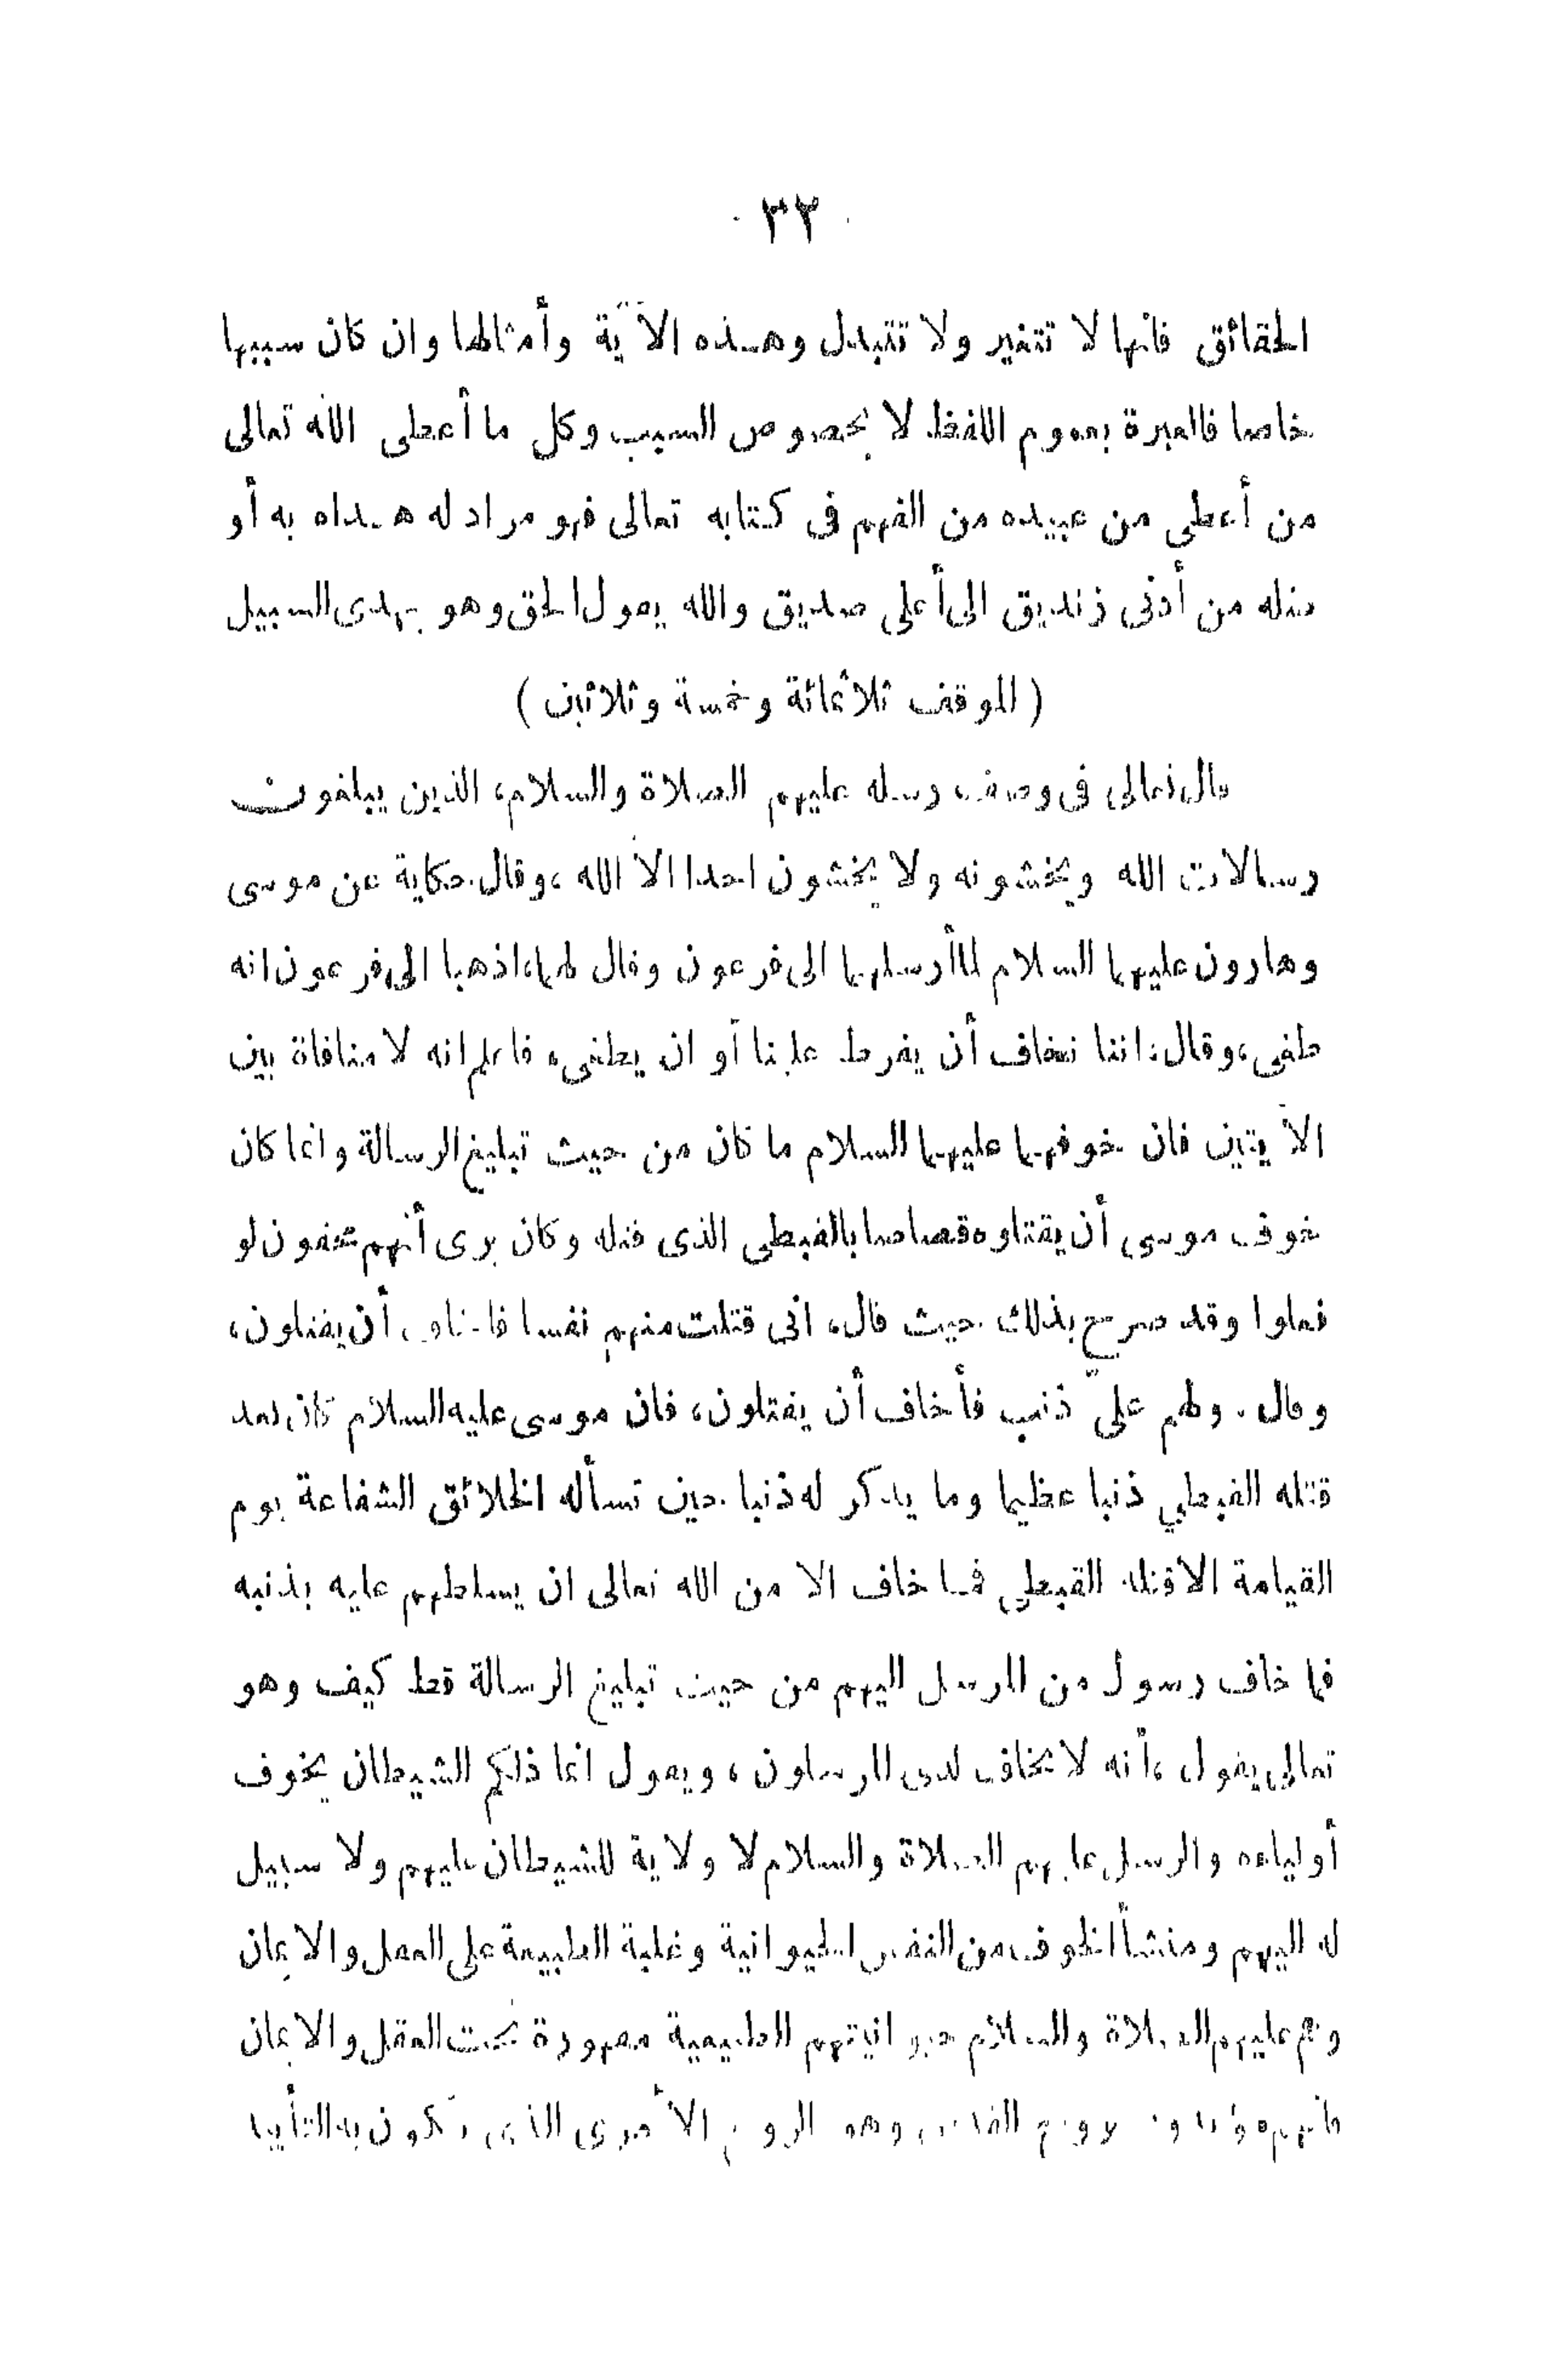 ٣٢
الحقائق فانها لا تتغير ولا تتبدل وهـذه الآية وأمثالها وان كان سببها
خاصا فالعبرة بعموم اللفظ لا بخصوص السبب وكل ما أعطى الله تعالى
من أعطى من عبيده من الفهم فى كتابه تعالى فهو مراد له هـداه به أو
من أدنى زنديق الى أعلى صديق والله يقول الحق وهو يهدى السبيل
( الموقف ثلاثمائة وخمسة وثلاثين )
قال تعالى فى وصف رسله عليهم الصلاة والسلام، الذين يبلغون
رسالات الله ويخشونه ولا يخشون احدا الا الله ، وقال حكاية عن موسى
وهارون عليهما السلام لما أرسلهما الى فرعون وقال لهما، اذهبا الى فرعون انه
طغى، وقال، اننا نخاف أن يفرط علينا أو ان يطغى، فاعلم انه لا منافاة بين
الآيتين فان خوفهما عليهما السلام ما كان من حيث تبليغ الرسالة وانما كان
خوف موسى أن يقتلوه قصاصا بالقبطى الذى قتله وكان يرى أنهم محقون لو
فعلوا وقد صرح بذلك حيث قال، انى قتلت منهم نفسا فاخاف أن يقتلون،
وقال . ولهم علىّ ذنب فأخاف أن يقتلون، فان موسى عليه السلام كان يعد
قتله القبطي ذنبا عظيما وما يذكر له ذنبا حين تسأله الخلائق الشفاعة يوم
القيامة الا قتله القبطي فمـا خاف الا من الله تعالى ان يسلطهم عليه بذنبه
فما خاف رسول من المرسل اليهم من حيث تبليغ الرسالة قط كيف وهو
تعالى يقول ، أنه لا يخاف لدى المرسلون ، ويقول انما ذلكم الشيطان يخوف
أولياءه والرسل عليهم الصلاة والسلام لا ولاية للشيطان عليهم ولا سبيل
له اليهم ومنشأ الخوف من النفس الحيوانية وغلبة الطبيعة على العقل والايمان
وهم عليهم الصلاة والسلام حيوانيتهم الطبيعية مقهورة تحت العقل والايمان
فانهم مؤيدون بروح القدس وهو الروح الأمرى الذى يكون به التأييد